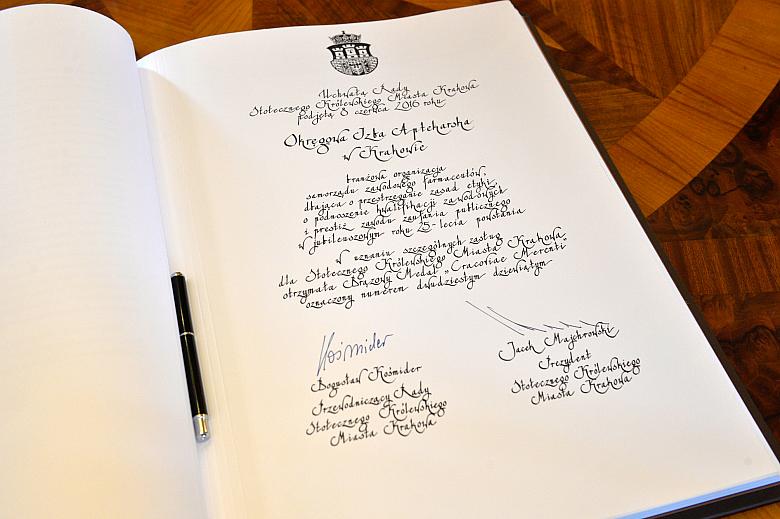 Uchwałą Rady
Stołecznego Królewskiego Miasta Krakowa
podjętą 8 czerwca 2016 roku
Okręgowa Izba Aptekarska
w Krakowie
branżowa organizacja
samorządu zawodowego farmaceutów,
dbająca o przestrzeganie zasad etyki,
o podnoszenie kwalifikacji zawodowych
i prestiż zawodu zaufania publicznego
w jubileuszowym roku 25-lecia powstania
W uznaniu szczególnych zasług
dla Stołecznego Królewskiego Miasta Krakowa
otrzymała Brązowy Medal „Cracoviae Merenti”
oznaczony numerem dwudziestym dziewiątym
Kośmider
Bogusław Kośmider
Przewodniczący Rady
Stołecznego Królewskiego
Miasta Krakowa
Jacek Majchrowski
Prezydent
Stołecznego Królewskiego
Miasta Krakowa